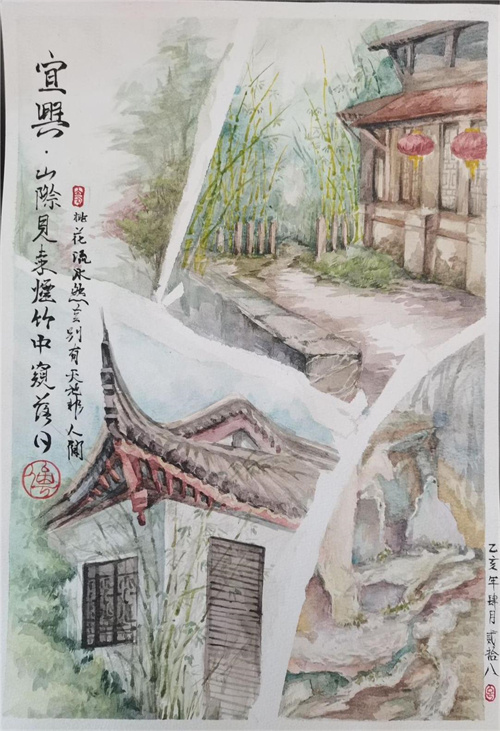 宜興·山際見来煙竹中窺落日
桃花流水然去别有天地非人間
乙亥年肆月貳拾八